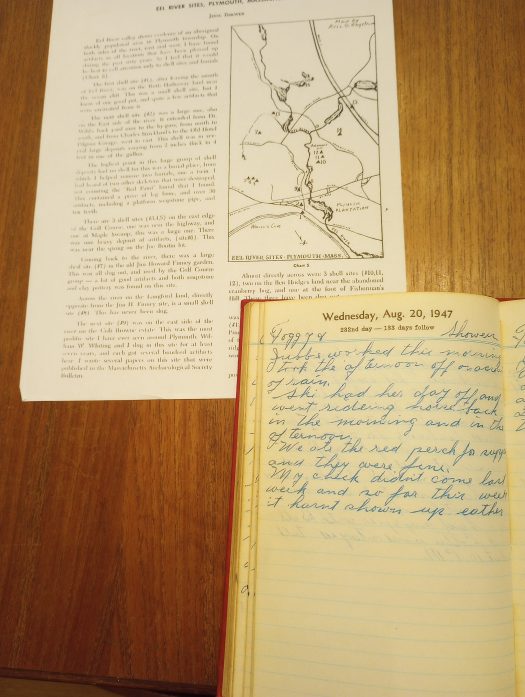 EEL RIVER SITES, PLYMOUTH,
Jesse Brewer
Map By
Ross D. Hegelson
PLYMOUTH
PLANTATION
EEL RIVER SITES - PLYMOUTH - MASS.
Chart 2
Eel River valley shows evidence of an aboriginal
thickly populated area in Plymouth Township. On
both sides of the river, east and west, I have found
artifacts in all locations that have been plowed up
during the past sixty years. So I feel that it would
be best to call attention only to shell sites and burials
(Chart 2).
The first shell site (#1), after leaving the mouth
of Eel River, was on the Hotel Hathaway land near
the ocean cliff. This was a small shell site, but I
know of one good pit, and quite a few artifacts that
were excavated from it.
The next shell site (#2) was a large one, also
on the east side of the river. It extended from Dr.
to east. This shell site in sev-
eral large deposits varying from 2 inches thick to 4
feet in one of the gullies.
The highest point in this large group of shell
deposits had no shell for this was a burial place, from
which I helped remove two burials, one a twin. I
had heard of two other skeletons that were destroyed,
not counting the "Red Paint" burial that I found.
This contained a piece of leg bone, and over 30
artifacts, including a platform steatite pipe, and
ten teeth.
There are 3 shell sites (#3,4,5) on the east edge
of the Golf Course; one was near the highway, and
one at Maple Swamp, this was a large one. There
was one heavy deposit of artifacts, (site#6). This
was near the spring on the Joe Boutin lot.
Coming back to the river, there was a large
shell site (#7) in the old Jon Howard Finney garden.
This was all dug out, and used by the Golf Course
group — a lot of good artifacts and both soapstone
and clay pottery was found on this site.
Across the river on the Longford land, directly
opposite from the Jon H. Finney site, is a small shell
site (#8). This has never been dug.
The next site (#9) was on the east side of the
river on the Goli Browne estate. This was the most
prolific site I have ever seen around Plymouth. Wil-
liam W. Whiting and I dug in this site for at least
seven years, and each got several hundred artifacts
here. I wrote several papers on this site that were
published in the Massachusetts Archaeological Society
Bulletin.
Almost directly across were 3 shell sites (#10,11,
12); two on the Ben Hedges land near the abandoned
cranberry bog, and one at the foot of Fisherman's
Wednesday, Aug. 20, 1947
232nd day — 133 days follow
Foggy & Showers
Jusbe worked this morning
took the afternoon off on acc
of rain.
Ski had her day off and
went rideing horse back
in the morning and in the
afternoon.
We ate the red perch for supp
and they were fine.
My check didn't come last
week and so far this week
it hasnt shown up eather